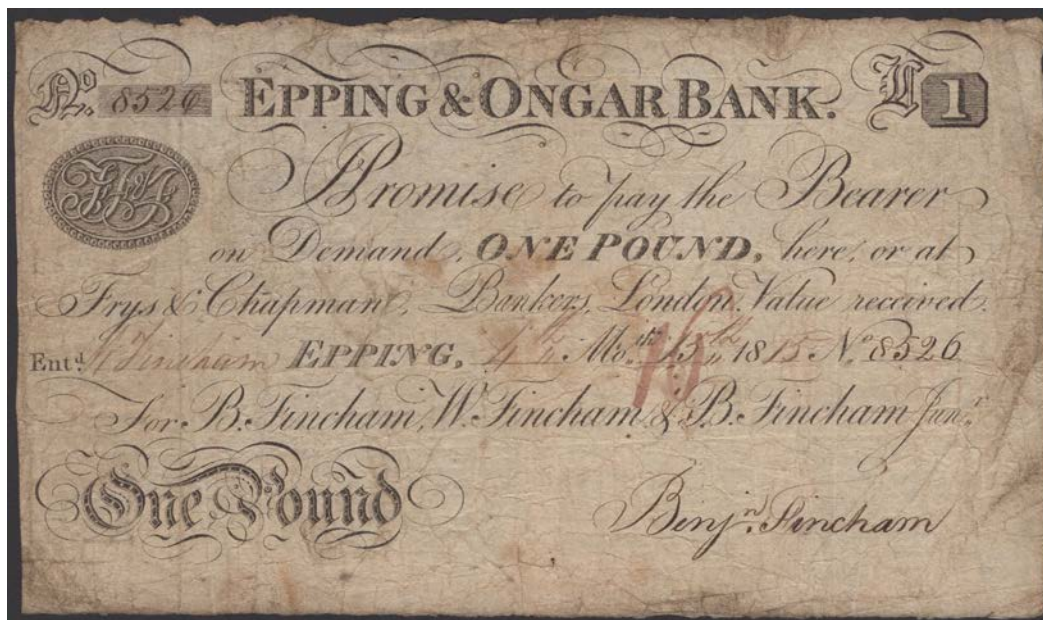 No. 8526 EPPING & ONGAR BANK. £ 1
I Promise to pay the Bearer
on Demand, ONE POUND, here, or at
Frys & Chapman, Bankers, London. Value received.
Entd. W Fincham EPPING, 4th Mo. 15th 1815 No. 8526
For B. Fincham, W. Fincham & B. Fincham Junr.
One Pound Benjn. Fincham